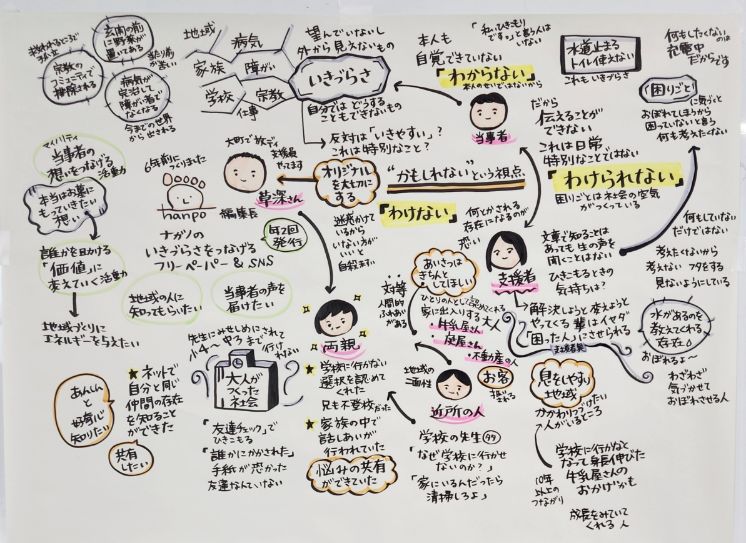 玄関の前に
野菜が
置いてある
宗教の
コミュニティで
排除される
病気が
完治して
障がい者で
なくなる
今までの世界
から出される
地域
病気
家族
障がい
学校
宗教
仕事
望んでいないし
外から見えないもの
いきづらさ
自分ではどうする
こともできないもの
反対は「いきやすい」?
これは特別なこと?
本人も
自覚できていない
「私、ひきこもり
です。」と言う人は
いない
「わからない」
本人のせいではないから
当事者
だから
伝えることが
できない
これは日常
特別なことではない
水道止まる
トイレ使えない
これもいきづらさ
何もしたくないのは
充電中
だからです
「困りごと」
に気づくと
おぼれてしまうから
困っていないと言う
何も考えたくない
「わけられない」
困りごとは社会の空気
がつくっている
マイノリティ
当事者の
想いをつなげる
活動
本当はお墓に
もっていきたい
想い
誰かを助ける
「価値」に
変えていく活動
地域づくりに
エネルギーを与えたい
6年前につくりました
hanpo
ナガノの
いきづらさをつなげる
フリーペーパー&SNS
大町で放デイ
支援員
やってます
編集長
草深さん
年2回
発行
オリジナル
を大切に
する
"かもしれない"という視点、
「わけない」
迷惑かけて
いるから
いない方が
いいと
何とかされる
存在になるのが
悪い
支援者
文章で知ることは
あっても生の声を
聞くことはない
ひきこもるときの
気持ちは?
解決しようと変えようと
やってくる輩はイヤダ
「困った人」にさせられる
支援者臭
何もしていない
だけではない
考えたくないから
考えないフタをする
見ないようにしている
水があるのを
教えてくれる
存在
おぼれるよ〜
わざわざ
気づかせて
おぼれさせる人
地域の人に
知ってもらいたい
当事者の声を
届けたい
あんしん
と
好奇心
知りたい
共有
したい
★ネットで
自分と同じ
仲間の存在
を知ること
ができた
先生にみせしめにされて
小4〜中3まで
行けない
大人が
つくった
社会
「友達チェック」で
ひきこもる
「誰かにかかされた」
手紙が悲かった
友達なんていない
両親
★学校に行かない
選択を認めて
くれた
兄も不登校だった
★家族の中で
話しあいが
行われていた
悩みの共有
ができていた
対等
人間的
ふれあい
がある
あいさつは
きちんと
してほしい
ひとりの人として認めてくれる
家に出入りする大人
牛乳屋さん
・灰屋さん
・不動産の人
地域の
二面性
近所の人
お客
扱いされる
学校の先生
「なぜ学校に行かせ
ないのか?」
「家にいるんだったら
清掃しろよ」
息をしやすい
地域
かかわりつづけたい
人がいるところ
10年
以上の
つながり
学校に行かなく
なって身長伸びた
牛乳屋さんの
おかげかも
成長をみていて
くれる人